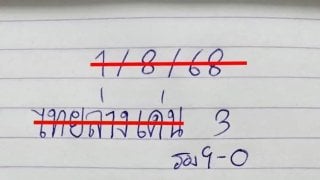 1/8/68
ไทยล่างเด่น 3
รอง 9-0